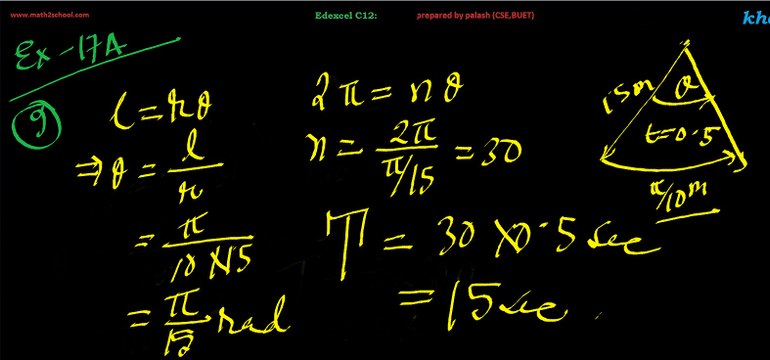 www.math2school.com Edexcel C12: prepared by palash (CSE,BUET) kha
Ex-17A
9
l = rθ
⇒ θ = l/r
= π/(10×1.5)
= π/15 rad
2π = nθ
n = 2π/(π/15) = 30
T = 30 × 0.5 sec
= 15 sec.
1.5m
θ
t=0.5
π/10 m